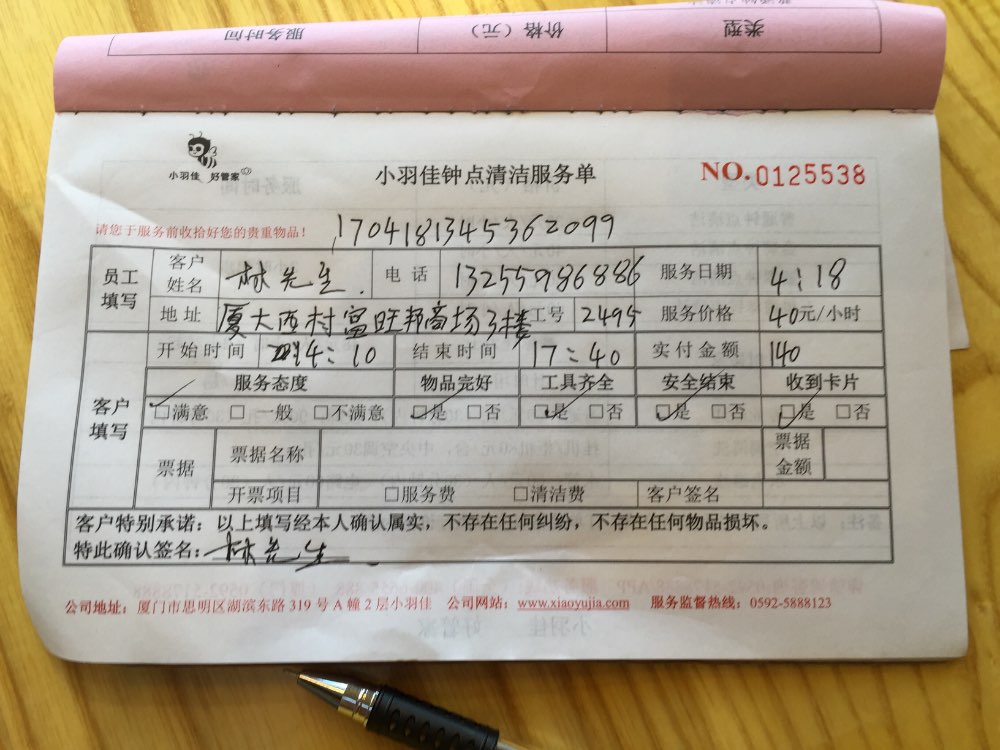 服务时间 价格（元） 类型
小羽佳 好管家
小羽佳钟点清洁服务单
NO.0125538
请您于服务前收拾好您的贵重物品！
1704181345362099
员工填写 客户姓名 林先生 电话 13255986886 服务日期 4:18
地址 厦大西村富旺邦商场3楼 工号 2495 服务价格 40元/小时
客户填写 开始时间 14:10 结束时间 17:40 实付金额 140
服务态度 物品完好 工具齐全 安全结束 收到卡片
□满意 □一般 □不满意 □是 □否 □是 □否 □是 □否 □是 □否
票据 票据名称 票据金额
开票项目 □服务费 □清洁费 客户签名
客户特别承诺：以上填写经本人确认属实，不存在任何纠纷，不存在任何物品损坏。
特此确认签名：林先生
公司地址：厦门市思明区湖滨东路 319 号 A 幢 2 层小羽佳 公司网站：www.xiaoyujia.com 服务监督热线：0592-5888123